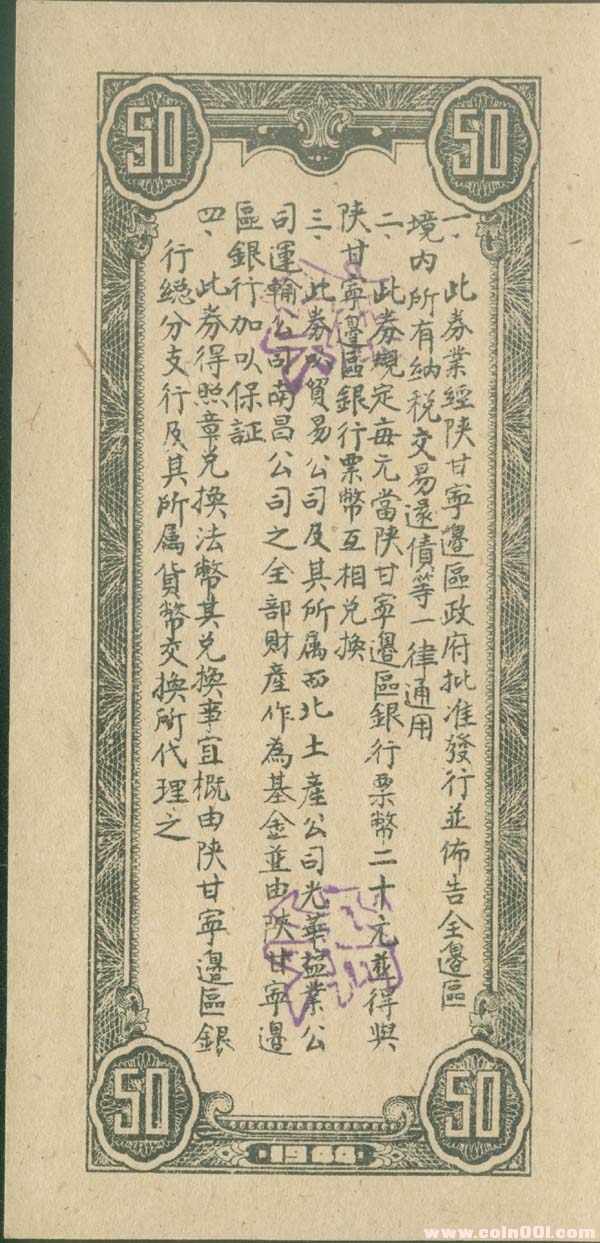 50
50
一、此券業經陝甘寧邊區政府批准發行並佈告全邊區
境内所有納稅交易還債等一律通用
二、此券規定每元當陝甘寧邊區銀行票幣二十元並得與
陝甘寧邊區銀行票幣互相兑換
三、此券以貿易公司及其所属西北土產公司光華盐業公
司運輸公司南昌公司之全部財產作為基金並由陝甘寧邊
區銀行加以保証
四、此券得照章兑換法幣其兑換事宜概由陝甘寧邊區銀
行總分支行及其所属貨幣交換所代理之
50
50
1944
www.coin001.com